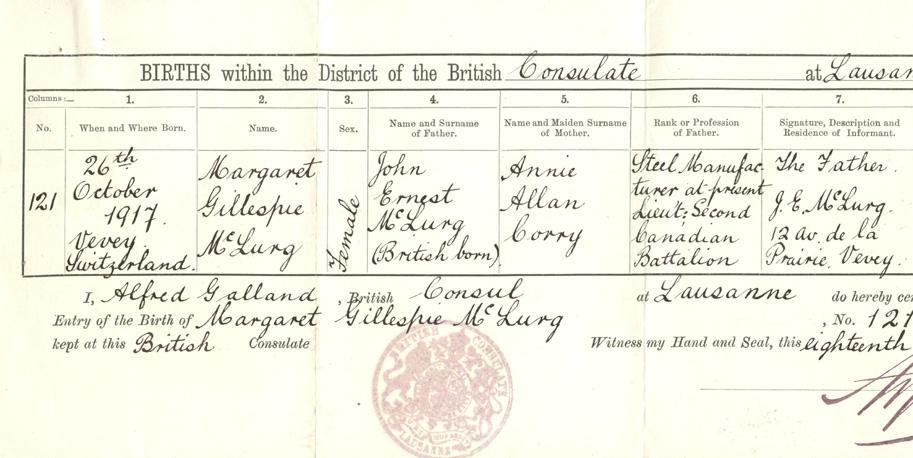 BIRTHS within the District of the British Consulate at Lausan
Columns:— 1. 2. 3. 4. 5. 6. 7.
No. When and Where Born. Name. Sex. Name and Surname of Father. Name and Maiden Surname of Mother. Rank or Profession of Father. Signature, Description and Residence of Informant.
121
26th
October
1917.
Vevey.
Switzerland.
Margaret
Gillespie
McLurg
Female
John
Ernest
McLurg
(British born)
Annie
Allan
Corry
Steel Manufac-
turer at present
Lieut: Second
Canadian
Battalion
The Father.
J. E. McLurg.
12 Av. de la
Prairie, Vevey.
I, Alfred Galland, British Consul at Lausanne do hereby cer
Entry of the Birth of Margaret Gillespie McLurg, No. 121
kept at this British Consulate Witness my Hand and Seal, this eighteenth
BRITISH CONSULATE
LAUSANNE